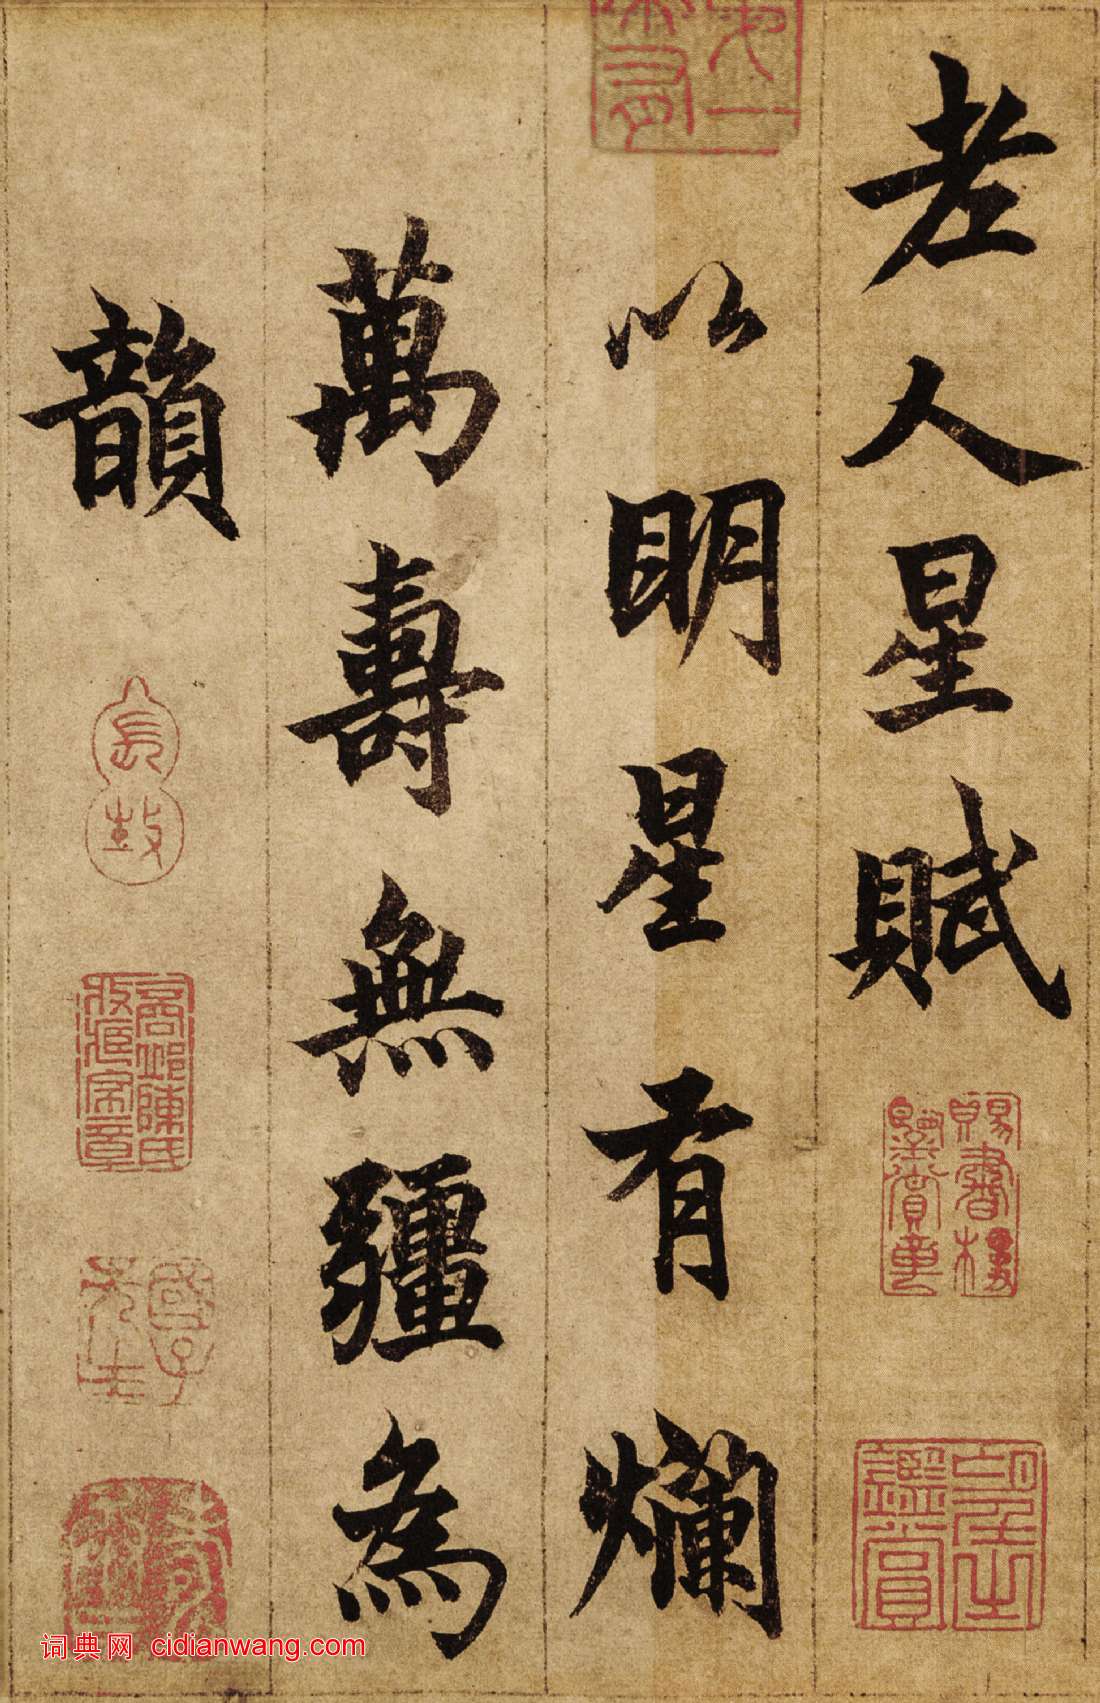 老人星賦
以明星有爛
萬壽無疆為
韻
词典网 cidianwang.com